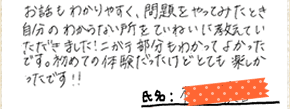 お話もわかりやすく、問題をやってみたとき
自分のわからない所をていねいに教えてい
ただきました!ニガテ部分もわかってよかった
です。初めての体験だったけどとても楽しか
ったです!!
氏名: